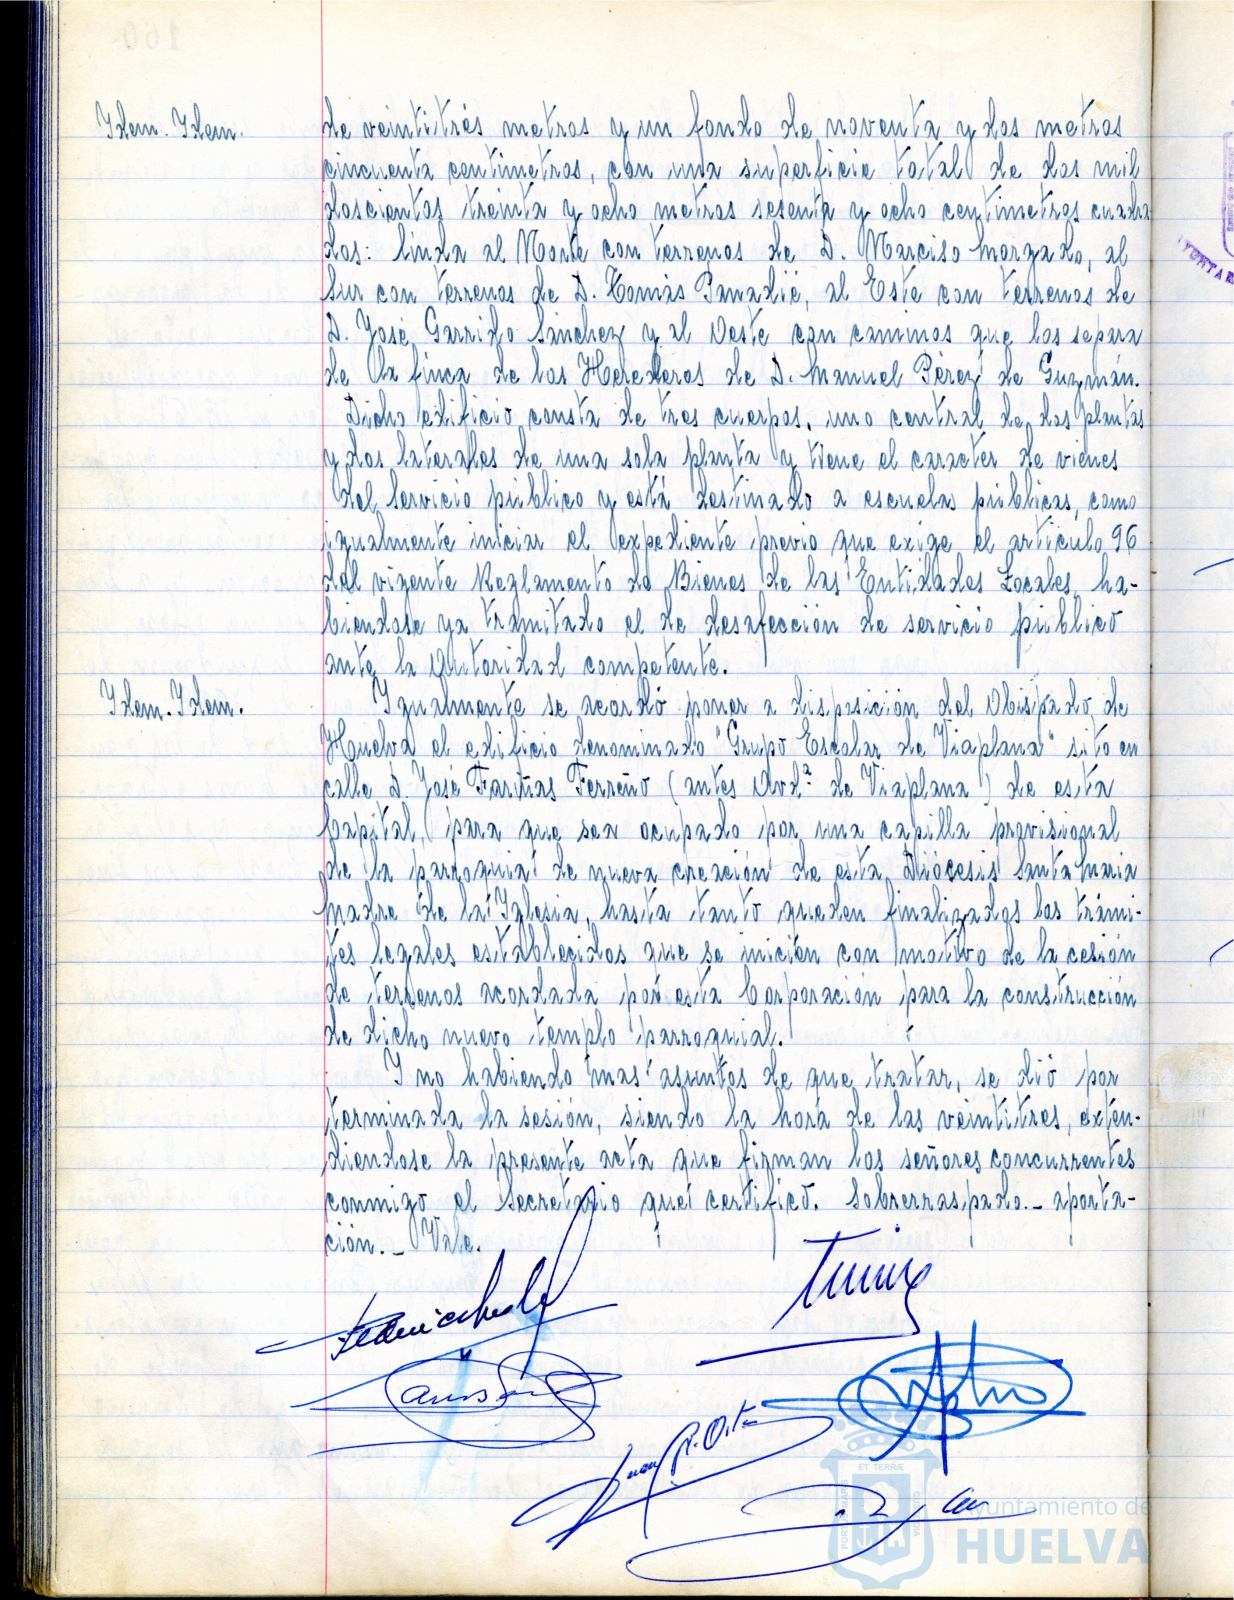 Idem. Idem.
de veintitrés metros y un fondo de noventa y dos metros
cincuenta centimetros, con una superficie total de dos mil
doscientos treinta y ocho metros sesenta y ocho centimetros cuadra
dos: linda al Norte con terrenos de D. Narciso Morgado, al
Sur con terrenos de D. Tomás, al Este con terrenos de
D. José Garrido Sánchez y al Oeste con caminos que los separa
de la finca de los Herederos de D. Manuel Pérez de Guzmán.
Dicho edificio consta de tres cuerpos, uno central de dos plantas
y dos laterales de una sola planta y tiene el caracter de vienes
del servicio público y está destinado a escuelas públicas, como
igualmente iniciar el expediente previo que exige el artículo 96
del vigente Reglamento de Bienes de las Entidades Locales, ha-
biendose ya tramitado el de desafección de servicio público
ante la Autoridad competente.
Idem. Idem.
Igualmente se acordó poner a disposición del Obispado de
Huelva el edificio denominado "Grupo Escolar de Viaplana" sito en
calle D. José Fariñas Ferreño (antes Avdª de Viaplana) de esta
Capital, para que sea ocupado por una capilla provisional
de la parroquia de nueva creación de esta Diócesis Santa Maria
Madre de la Iglesia, hasta tanto queden finalizados los trámi-
tes legales establecidos que se inicien con motivo de la cesión
de terrenos acordada por esta Corporación para la construcción
de dicho nuevo templo parroquial.
Y no habiendo mas asuntos de que tratar, se dió por
terminada la sesión, siendo la hora de las veintitres, exten-
diendose la presente acta que firman los señores concurrentes
conmigo el Secretario que certifico. Sobrerraspado.- aporta-
ción.- Vale.
ET TERRÆ
Ayuntamiento de
HUELVA